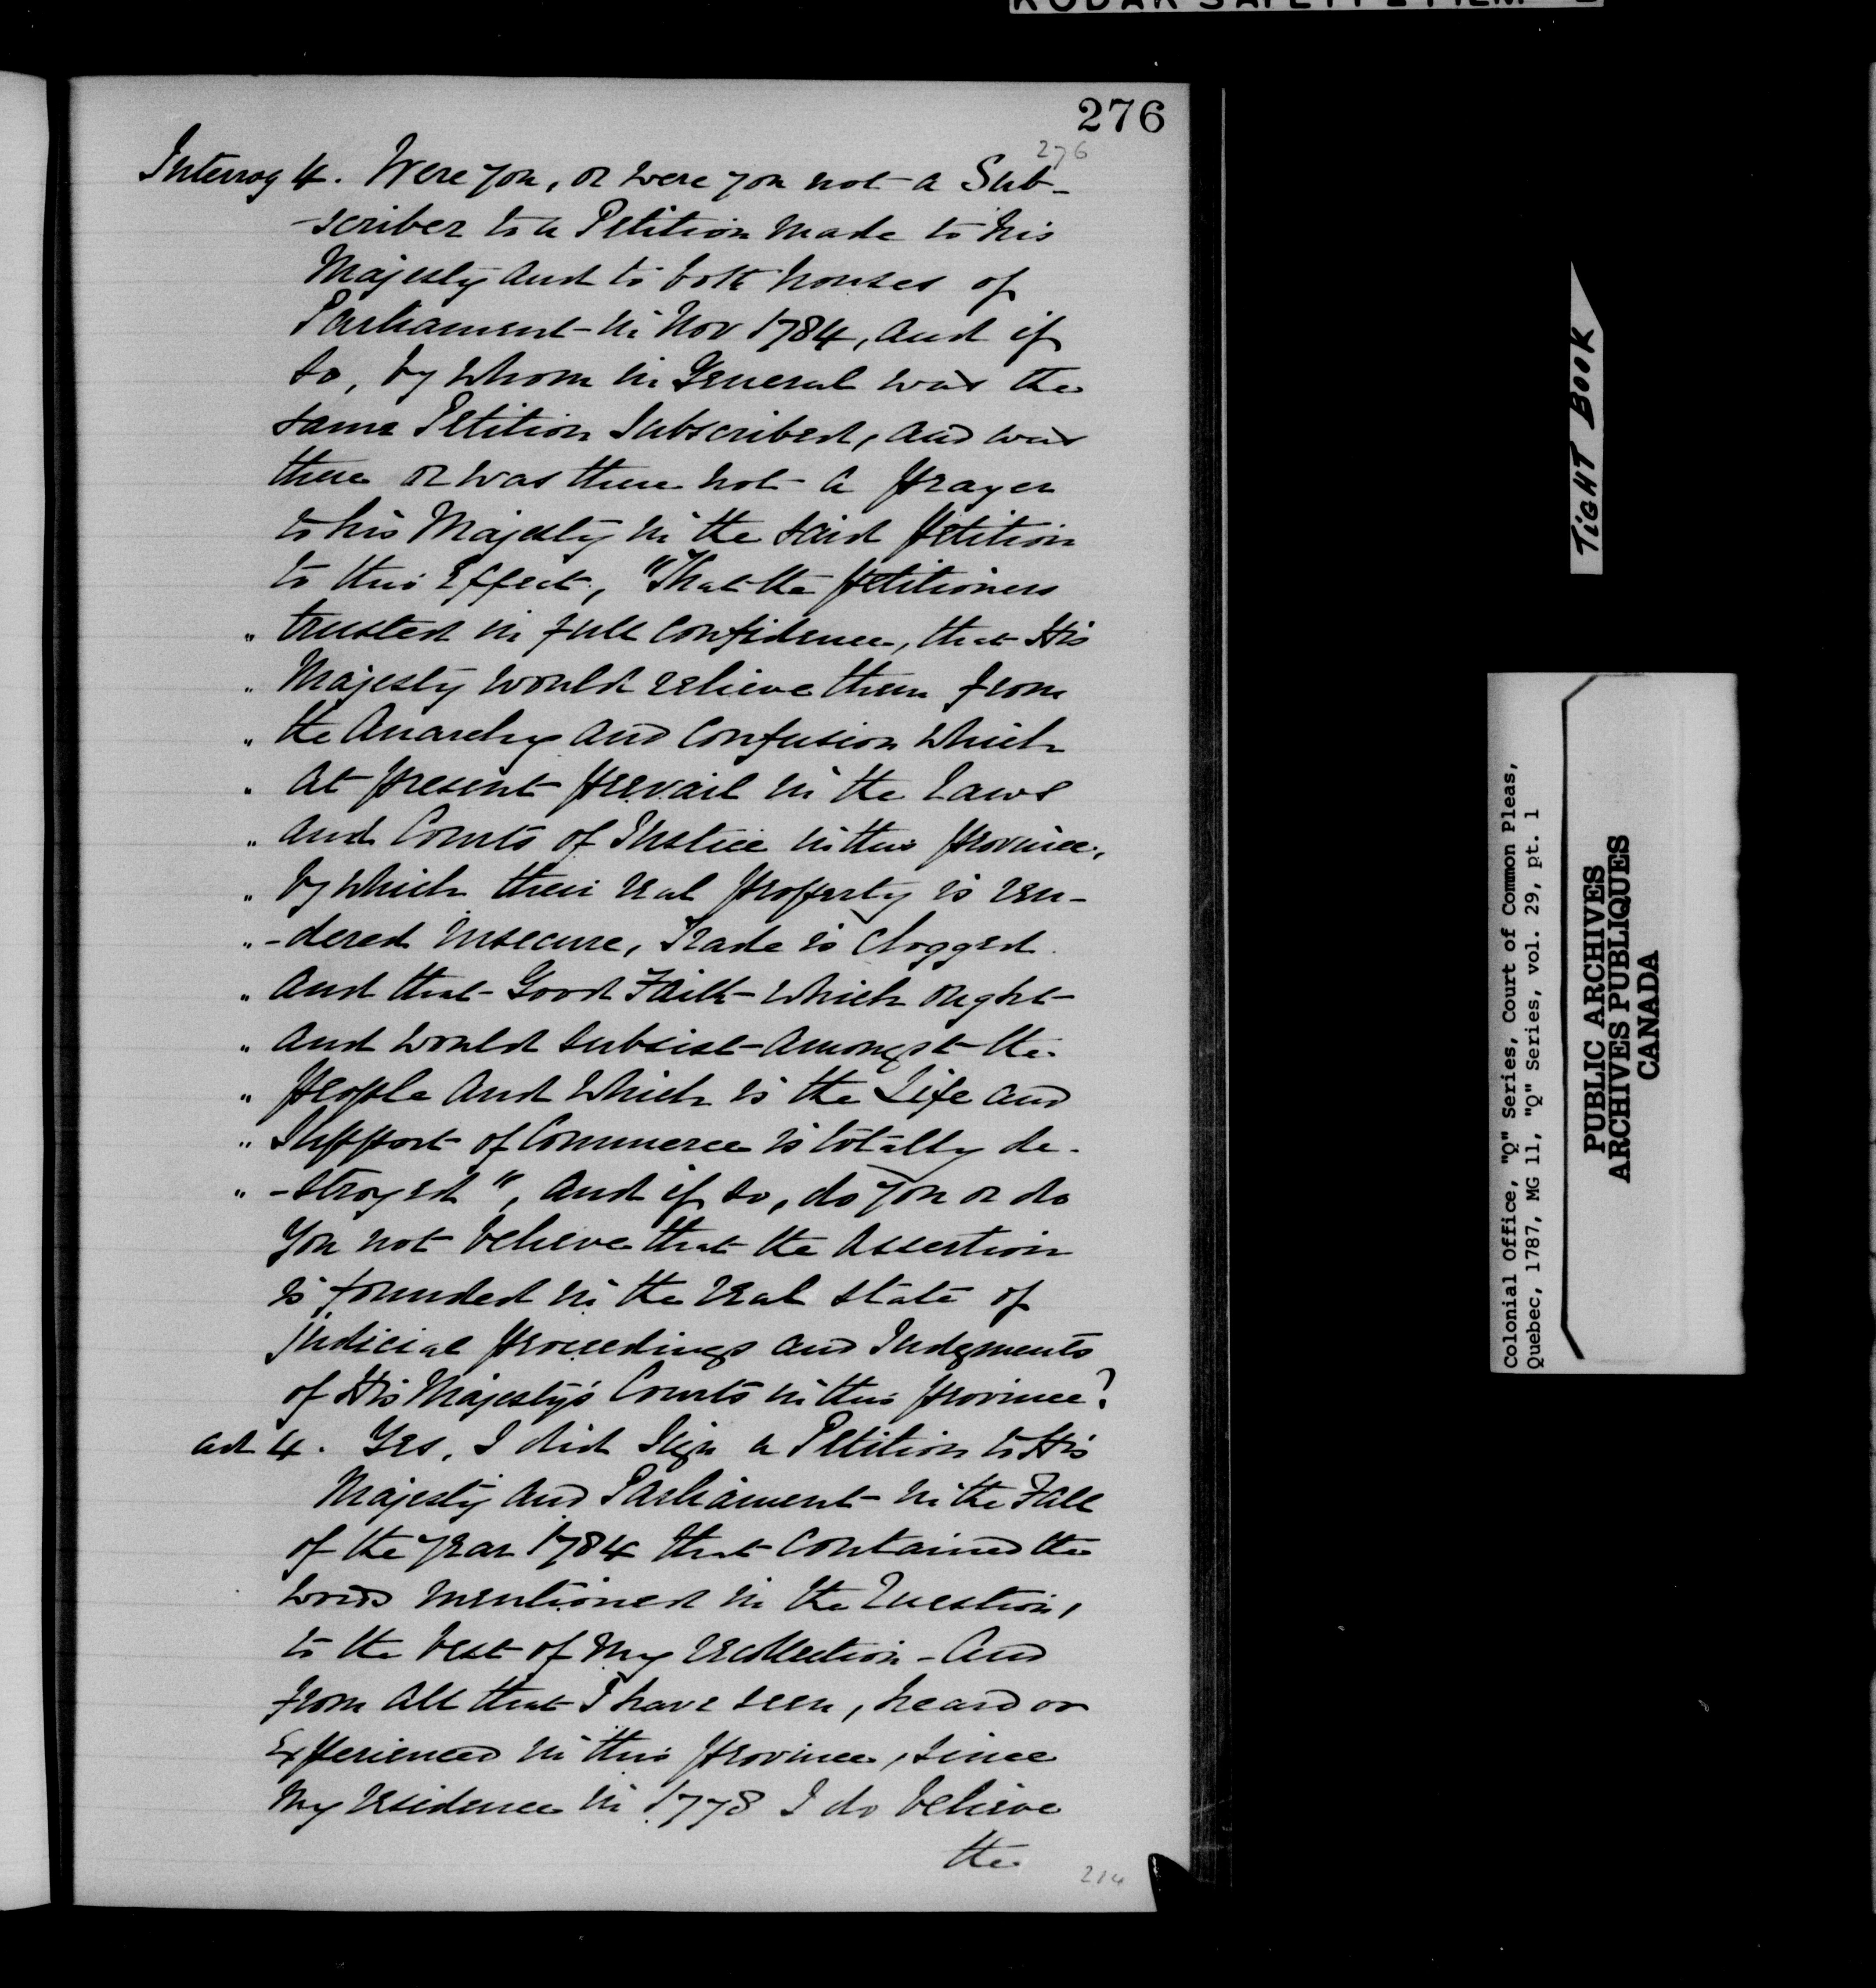 KODAK SAFETY FILM
276
276
Interrog 4. Were you, or were you not a Sub-
-scriber to a Petition made to his
Majesty and to both houses of
Parliament in Nov 1784, and if
so, by whom in General was the
same Petition Subscribed, and was
there or was there not a prayer
to his Majesty in the said petition
to this Effect, "That the petitioners
" trusted in full confidence, that His
" Majesty would relieve them from
" the Anarchy and Confusion which
" at present prevail in the Laws
" and Courts of Justice in this province,
" by which their real property is ren-
" -dered insecure, Trade is clogged
" and that Good Faith which ought
" and would subsist amongst the
" people and which is the Life and
" Support of Commerce is totally de-
" -stroyed", and if so, do you or do
you not believe that the Assertion
is founded in the real state of
judicial proceedings and Judgments
of His Majesty's Courts in this province?
ad 4. Yes, I did Sign a Petition to His
Majesty and Parliament in the Fall
of the year 1784 that contained the
words mentioned in the Question,
to the best of my recollection - And
from all that I have seen, heard or
Experienced in this province, since
my residence in 1778 I do believe
the
214
TIGHT BOOK
Colonial Office, "Q" Series, Court of Common Pleas,
Quebec, 1787, MG 11, "Q" Series, vol. 29, pt. 1
PUBLIC ARCHIVES
ARCHIVES PUBLIQUES
CANADA